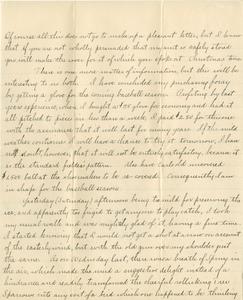 Of course all this does not go to make up a pleasant letter, but I know
that if you are not wholly persuaded that my suit is safely stored
you will make the over for it of which you spoke at Christmas time.
There is one more matter of information, but this will be
interesting to us both. I have concluded my purchasing foray
by getting a glove for the coming baseball season. Profiting by last
years experience, when I bought a glove for economy and had it
all pitched to pieces in less than a week, I paid 2.50 for this one
with the assurance that it will last for many years. If the mild
weather continues I will have a chance to try it tomorrow, I have
not doubt, however, that it will not be entirely satisfactory, because it
is the standard pattern. Also have I old uncovered
ball at the shoemaker to be re-covered. Consequently I am
in shape for the baseball season.
Yesterday (Saturday) afternoon being too mild for preserving the
ice, and apparently too frigid to get anyone to play catch, I took
my usual walk and was mighty glad of it having a fine time.
I started thinking that I would not get a shot at a snow on account
of the easterly wind, but with the old gun on my shoulder just
the same. As on Wednesday last, there was a breath of Spring in
the air, which made the wind a suggestive delight instead of a
hindrance and readily transformed the cheerful rollicking tree
Sparrow into any sort of a bird which one happened to be thinking